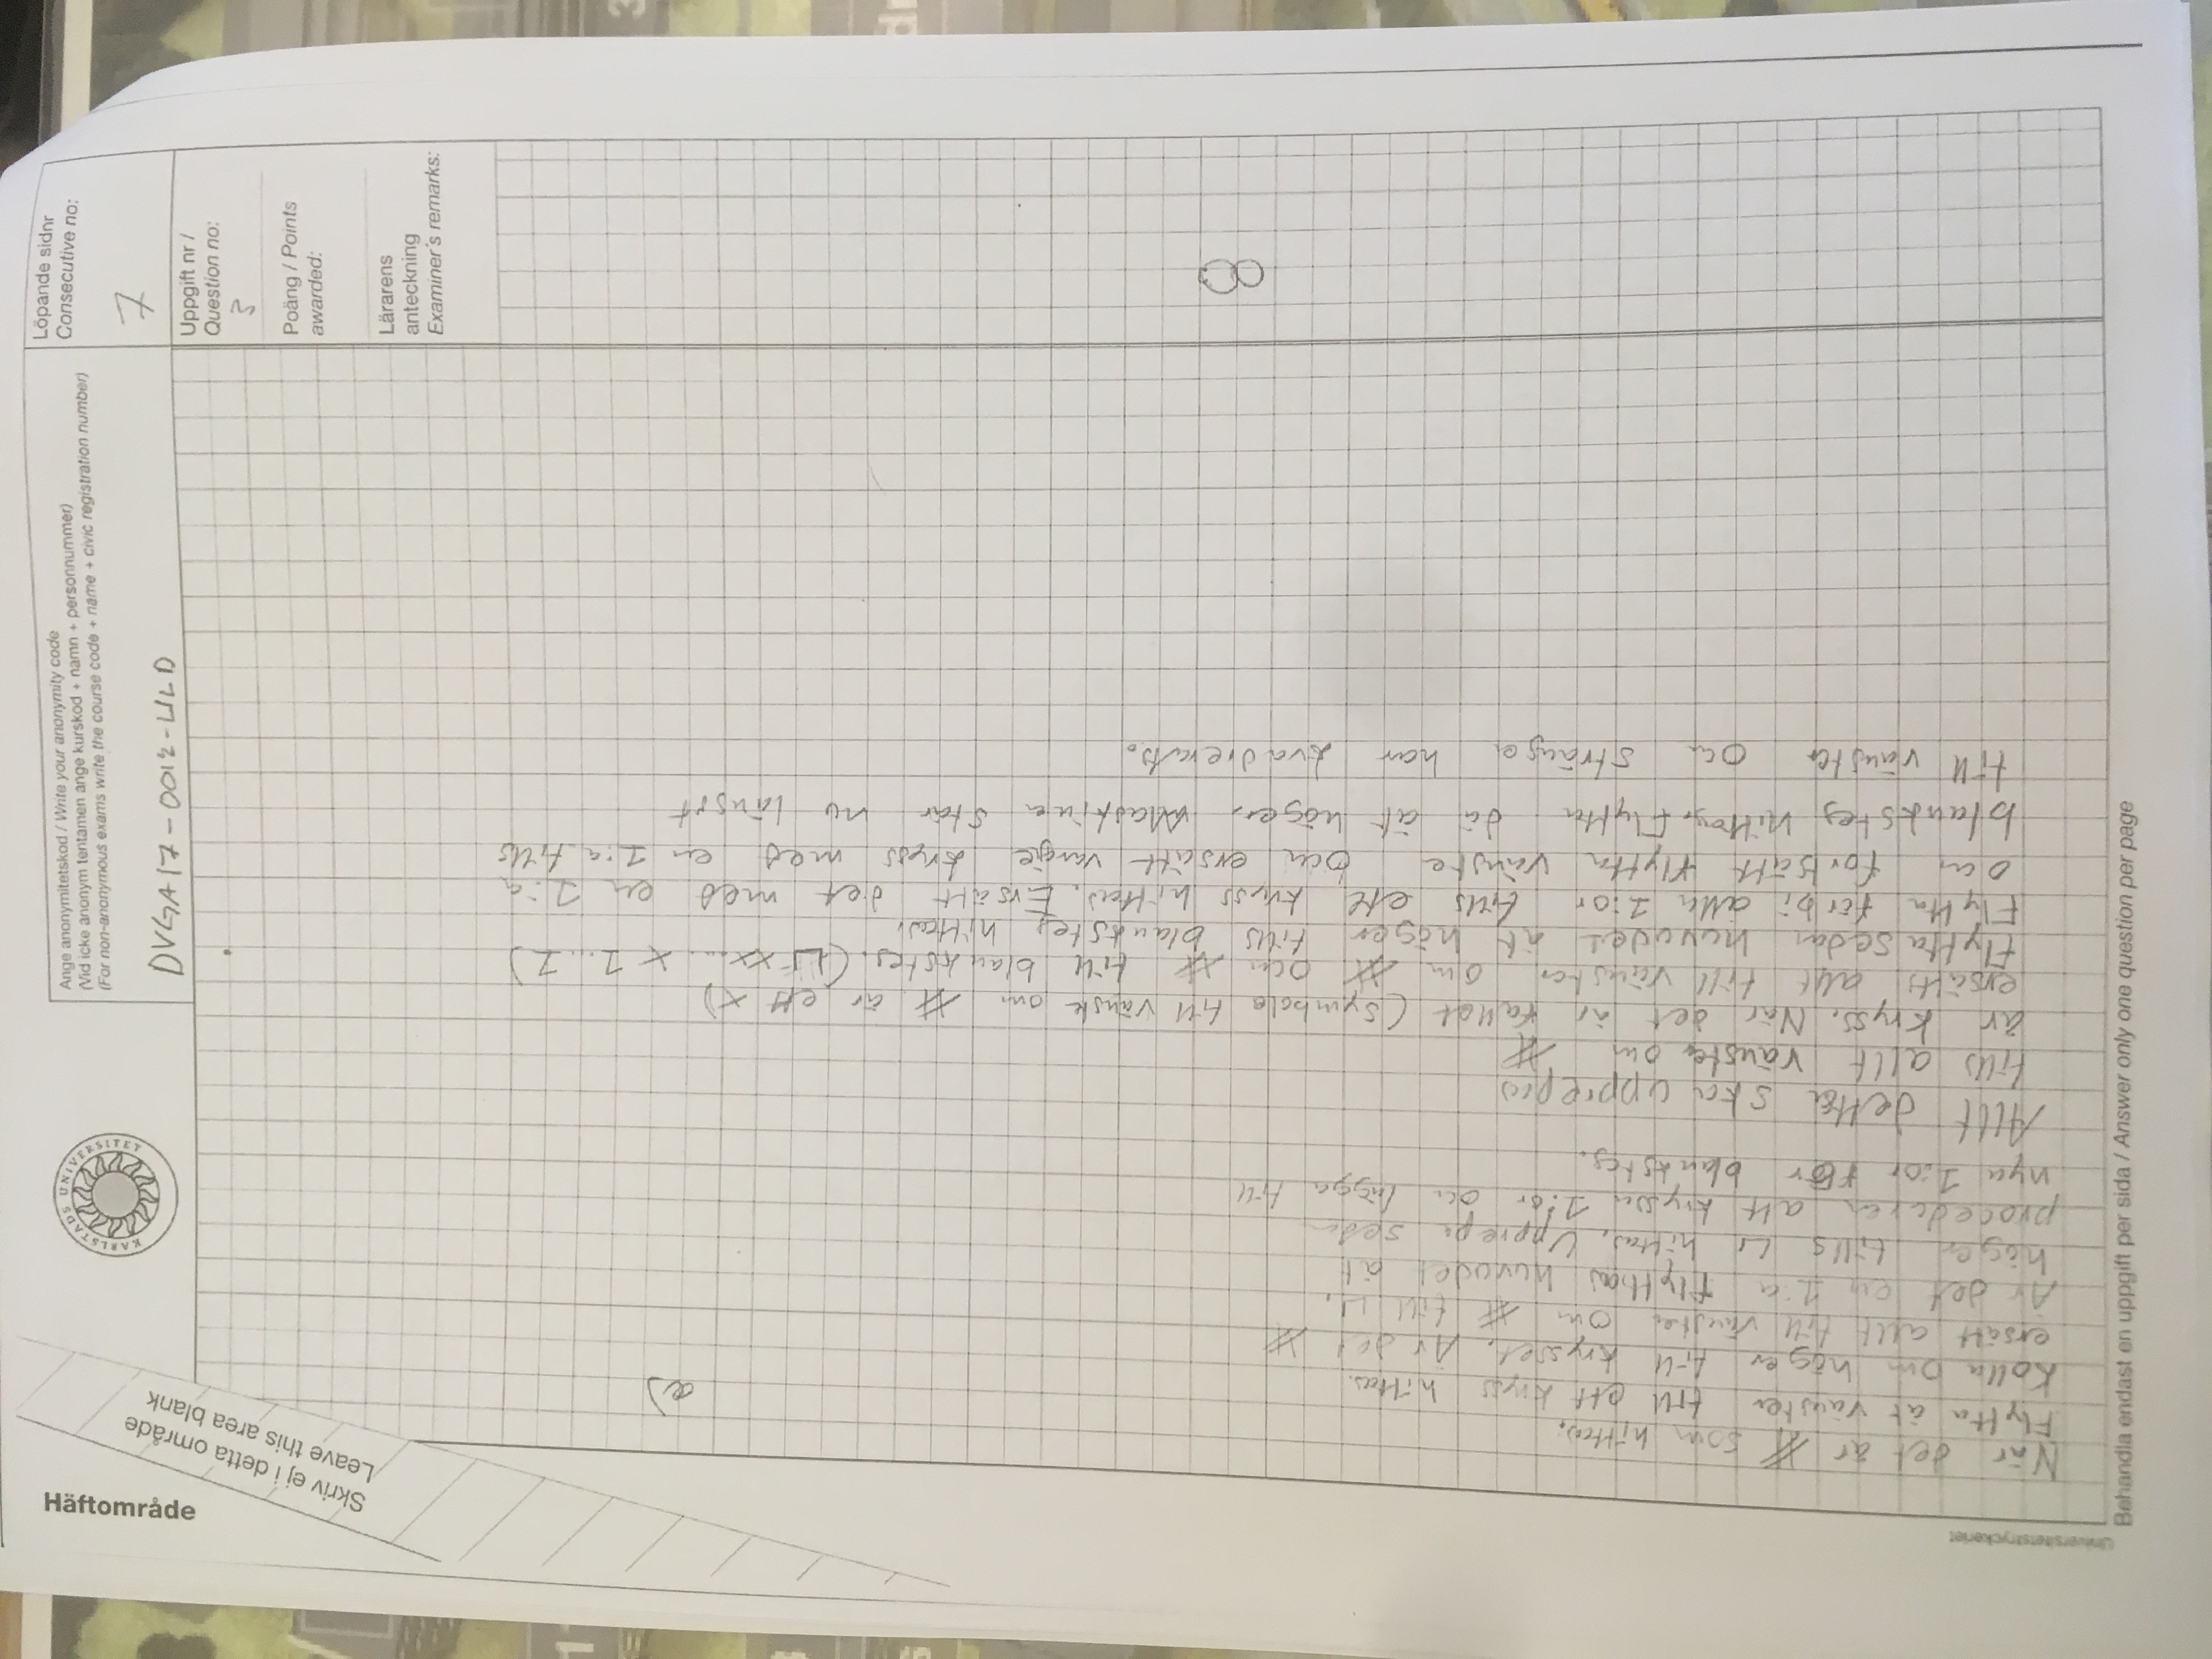 Häftområde
Skriv ej i detta område
Leave this area blank
KARLSTADS UNIVERSITET
Ange anonymitetskod / Write your anonymity code
(Vid icke anonym tentamen ange kurskod + namn + personnummer)
(For non-anonymous exams write the course code + name + civic registration number)
DVGA17-0012-ULD
Löpande sidnr
Consecutive no:
7
Uppgift nr /
Question no:
3
Poäng / Points
awarded:
Lärarens
anteckning
Examiner's remarks:
När det är # som hittas.
Flytta åt vänster till ett kryss hittas.
Kolla om höger till krysset. Är det #
ersätt allt till vänster om # till ⊔.
Är det en 1:a flyttas huvudet åt
höger tills ⊔ hittas. Upprepa sedan
proceduren att kryssa 1:or och lägga till
nya 1:or för blanksteg.
Allt detta ska upprepas
tills allt vänster om #
är kryss. När det är fallet (symbole till vänsk om # är ett x)
ersätts allt till vänster om # och # till blankstes. (⊔ xx... x 1..1)
Flytta sedan huvudet åt höger tills blanksteg hittas.
Flytta förbi alla 1:or tills ett kryss hittas. Ersätt det med en 1:a
och fortsätt flytta vänste och ersätt varje kryss med en 1:a tills
blanksteg hittas. Flytta då åt höger. Maskinen står nu längst
till vänster och strängen har kvadrerats.
Universitetstryckeriet
Behandla endast en uppgift per sida / Answer only one question per page